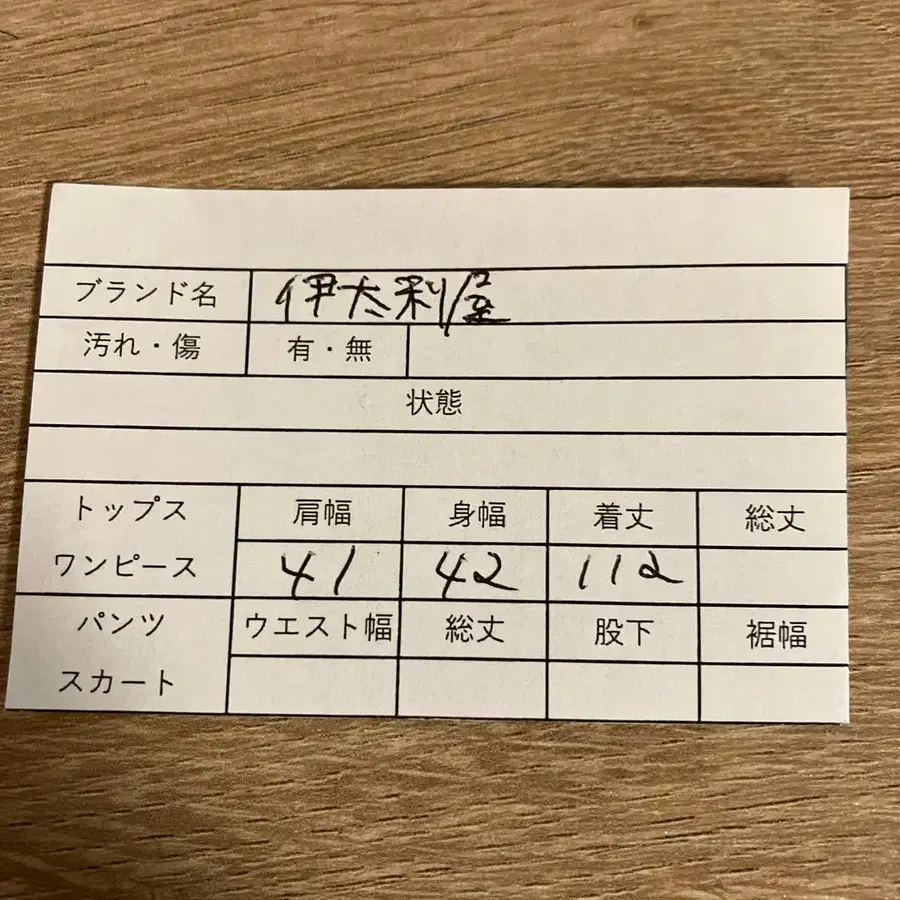 ブランド名 伊太利屋
汚れ・傷 有・無
状態
トップス 肩幅 身幅 着丈 総丈
ワンピース 41 42 112
パンツ ウエスト幅 総丈 股下 裾幅
スカート